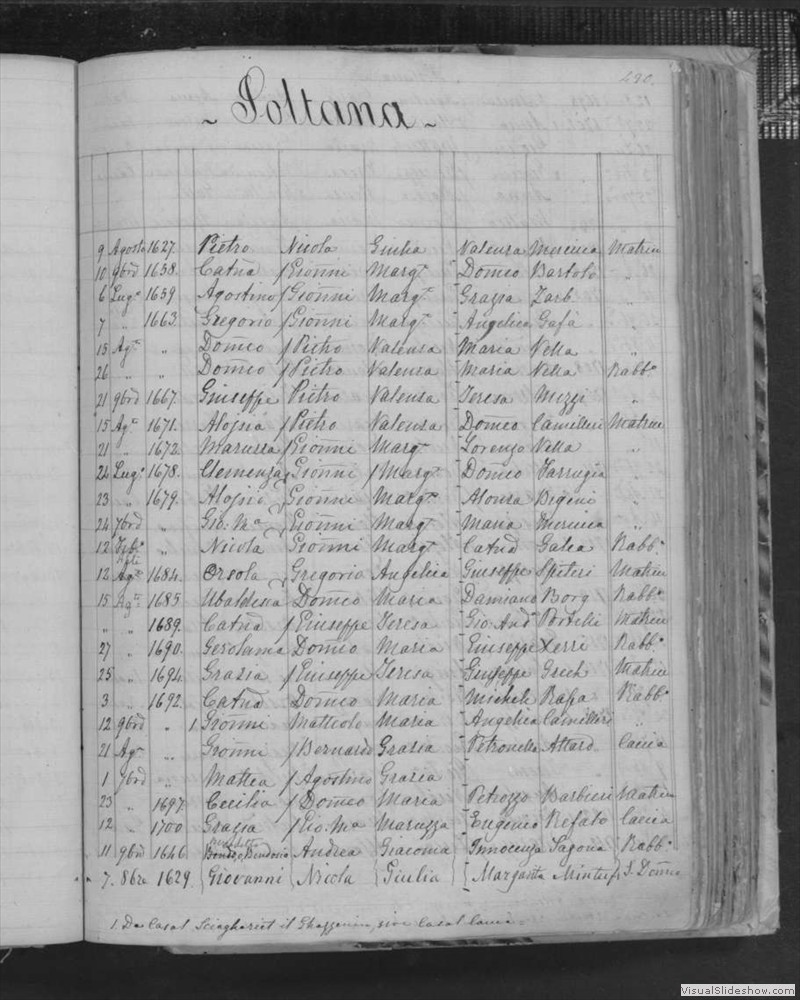 290.
~ Soltana ~
9 Agosto 1627. Pietro Nicola Giulia Valenza Mercieca Matrice
10 9brẽ 1658. Catña Gioñni Margta Doṁco Bartolo "
6 Lugo 1659 Agostino Gioñni Margta Grazia Zarb "
7 " 1663. Gregorio Gioñni Margta Angelica Gafà "
15 Agto " Doṁco Pietro Valenza Maria Vella "
26 " " Doṁco Pietro Valenza Maria Vella Rabbo
21 9brẽ 1667. Giuseppe Pietro Valenza Teresa Mizzi "
15 Agto 1671. Aloisia Pietro Valenza Doṁco Camilleri Matrice
21 " 1672. Maruzza Gioñni Margta Lorenzo Vella "
24 Lugo 1678. Clemenza Gioñni Margta Doṁco Farrugia "
23 " 1679. Aloisio Gioñni Margta Alonza Bigeni "
24 7brẽ " Gio: Ma Gioñni Margta Maria Mercieca "
12 " Nicola Gioñni Margta Catña Galea Rabbo
12 Agto 1684. Orsola Gregorio Angelica Giuseppe Spiteri Matrice
15 Agto 1685 Ubaldesca Doṁco Maria Damiano Borg Rabbo
" " 1689. Catña Giuseppe Teresa Gio: Andª Portelli Matrice
27 " 1690. Gerolama Doṁco Maria Giuseppe Xerri Rabbo
25 " 1694. Grazia Giuseppe Teresa Giuseppe Grech Matrice
3 " 1692. Catña Doṁco Maria Michele Rapa Rabbo
12 9brẽ " 1. Gioñni Matteolo Maria Angelica Camilleri "
21 Agto " Gioñni Bernardo Grazia Petronella Attard Caccia
1 9brẽ " Mattea Agostino Grazia
23 " 1697. Cecilia Doṁco Maria Petrozzo Barbieri Matrice
12 " 1700 Grazia Gio: Ma Maruzza Eugenio Refalo Caccia
11 9brẽ 1646. Andrea Giacoma Innocenza Sagona Rabbo
7. 8bre 1629. Giovanni Nicola Giulia Margarita Mintuf S. Doṁco
1. Da Casal